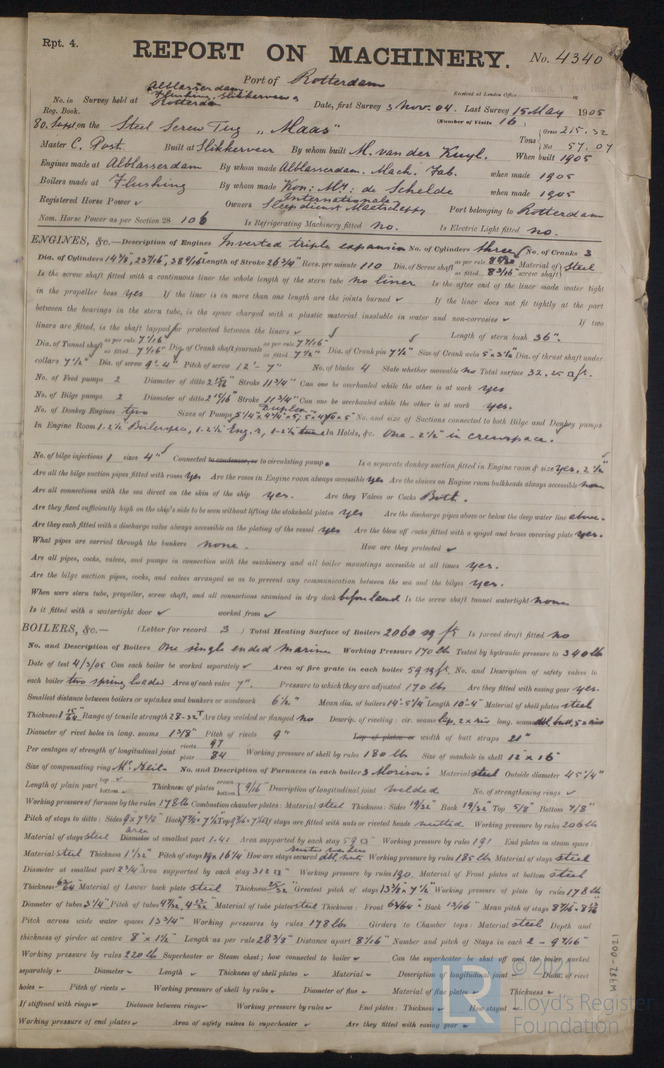 Rpt. 4.
REPORT ON MACHINERY.
No. 4340
Port of Rotterdam
Received at London Office
Alblasserdam
Flushing, Slikkerveer &
No. in Survey held at Rotterdam Date, first Survey 3 Nov. 04. Last Survey 15 May 1905
Reg. Book.
(Number of Visits 16)
80. Supt on the Steel Screw Tug "Maas" Tons Gross 215.32
Net 57.07
Master C. Post Built at Slikkerveer By whom built M. van der Kuyl. When built 1905
Engines made at Alblasserdam By whom made Alblasserdam. Mach. Fab. when made 1905
Boilers made at Flushing By whom made Kon: Mij: de Schelde when made 1905
Registered Horse Power Owners Internationale Sleepdienst Maatschappy Port belonging to Rotterdam
Nom. Horse Power as per Section 28 106 Is Refrigerating Machinery fitted no. Is Electric Light fitted no.
ENGINES, &c.—Description of Engines Inverted triple expansion No. of Cylinders three No. of Cranks 3
Dia. of Cylinders Length of Stroke 26 3/4" Revs. per minute 110 Dia. of Screw shaft as per rule as fitted 8 3/16" Material of screw shaft Steel
Is the screw shaft fitted with a continuous liner the whole length of the stern tube no liner Is the after end of the liner made water tight
in the propeller boss yes If the liner is in more than one length are the joints burned If the liner does not fit tightly at the part
between the bearings in the stern tube, is the space charged with a plastic material insoluble in water and non-corrosive If two
liners are fitted, is the shaft lapped or protected between the liners Length of stern bush 36".
Dia. of Tunnel shaft as per rule 7 7/16" as fitted 7 7/16" Dia. of Crank shaft journals as per rule 7 7/16" as fitted 7 1/2" Dia. of Crank pin 7 1/2" Size of Crank webs 5 x 3 1/2 Dia. of thrust shaft under
collars 7 1/2" Dia. of screw 9'-4" Pitch of screw 12'-7" No. of blades 4 State whether moveable no Total surface 32.25 □ ft.
No. of Feed pumps 2 Diameter of ditto Stroke 11 3/4" Can one be overhauled while the other is at work yes
No. of Bilge pumps 2 Diameter of ditto Stroke 11 3/4" Can one be overhauled while the other is at work yes.
No. of Donkey Engines two Sizes of Pumps Duplex No. and size of Suctions connected to both Bilge and Donkey pumps
In Engine Room In Holds, &c. One - 2 1/2" in crewspace.
No. of bilge injections 1 sizes 4" Connected to condenser, or to circulating pump. Is a separate donkey suction fitted in Engine room & size yes, 2 1/2"
Are all the bilge suction pipes fitted with roses yes Are the roses in Engine room always accessible yes Are the sluices on Engine room bulkheads always accessible none
Are all connections with the sea direct on the skin of the ship yes. Are they Valves or Cocks Both.
Are they fixed sufficiently high on the ship's side to be seen without lifting the stokehold plates yes Are the discharge pipes above or below the deep water line above.
Are they each fitted with a discharge valve always accessible on the plating of the vessel yes Are the blow off cocks fitted with a spigot and brass covering plate yes.
What pipes are carried through the bunkers none. How are they protected
Are all pipes, cocks, valves, and pumps in connection with the machinery and all boiler mountings accessible at all times yes.
Are the bilge suction pipes, cocks, and valves arranged so as to prevent any communication between the sea and the bilges yes.
When were stern tube, propeller, screw shaft, and all connections examined in dry dock before land Is the screw shaft tunnel watertight none
Is it fitted with a watertight door worked from
BOILERS, &c.— (Letter for record 3) Total Heating Surface of Boilers 2060 sq ft Is forced draft fitted no
No. and Description of Boilers One single ended marine Working Pressure 170 lb Tested by hydraulic pressure to 340 lb
Date of test 4/3/05 Can each boiler be worked separately Area of fire grate in each boiler 59 sq ft. No. and Description of safety valves to
each boiler two spring loaded Area of each valve 7". Pressure to which they are adjusted 170 lbs Are they fitted with easing gear yes.
Smallest distance between boilers or uptakes and bunkers or woodwork 6 1/2" Mean dia. of boilers 14'-5 1/4" Length 10'-4" Material of shell plates steel
Thickness 1 5/64" Range of tensile strength 28-32 T Are they welded or flanged no Descrip. of riveting: cir. seams lap, 2 x riv long. seams dbl. butt, 5 x riv
Diameter of rivet holes in long. seams 1 3/8" Pitch of rivets 9" Lap of plates or width of butt straps 21"
Per centages of strength of longitudinal joint rivets 97 plate 84 Working pressure of shell by rules 180 lb Size of manhole in shell 12" x 16"
Size of compensating ring McNeil. No. and Description of Furnaces in each boiler 3 Morison's Material steel Outside diameter 45 1/4"
Length of plain part top bottom Thickness of plates crown bottom 9/16" Description of longitudinal joint welded No. of strengthening rings
Working pressure of furnace by the rules 178 lb Combustion chamber plates: Material steel Thickness: Sides 19/32" Back 19/32" Top 5/8" Bottom 7/8"
Pitch of stays to ditto: Sides Back Top If stays are fitted with nuts or riveted heads nutted Working pressure by rules 206 lb
Material of stays steel area Diameter at smallest part 1.41 Area supported by each stay 59 □" Working pressure by rules 191 End plates in steam space
Material steel Thickness 1 1/32" Pitch of stays How are stays secured Working pressure by rules 185 lb Material of stays steel
Diameter at smallest part 2 3/4" Area supported by each stay 312 □" Working pressure by rules 190. Material of Front plates at bottom steel
Thickness Material of Lower back plate steel Thickness Greatest pitch of stays 13 1/2" x 7 1/2" Working pressure of plate by rules 178 lb
Diameter of tubes 3 1/4" Pitch of tubes Material of tube plates steel Thickness: Front Back 13/16" Mean pitch of stays
Pitch across wide water spaces 13 3/4" Working pressures by rules 178 lb Girders to Chamber tops: Material steel Depth and
thickness of girder at centre 8" x 1 1/2" Length as per rule 28 3/8" Distance apart 8 1/16" Number and pitch of Stays in each 2 - 9 7/16"
Working pressure by rules 220 lb Superheater or Steam chest; how connected to boiler Can the superheater be shut off and the boiler worked
separately Diameter Length Thickness of shell plates Material Description of longitudinal joint Diam. of rivet
holes Pitch of rivets Working pressure of shell by rules Diameter of flue Material of flue plates Thickness
If stiffened with rings Distance between rings Working pressure by rules End plates: Thickness How stayed
Working pressure of end plates Area of safety valves to superheater Are they fitted with easing gear
© 2021
Lloyd's Register
Foundation
W782-0021